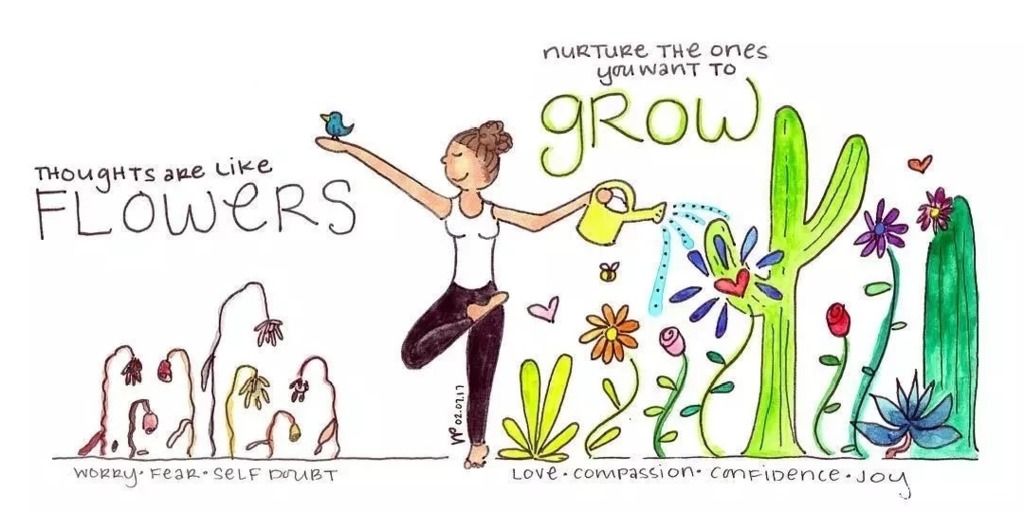 THOUGHTS ARE LIKE
FLOWERS
NURTURE THE ONES
YOU WANT TO
GROW
WORRY · FEAR · SELF DOUBT
LOVE · COMPASSION · CONFIDENCE · JOY
02.07.17